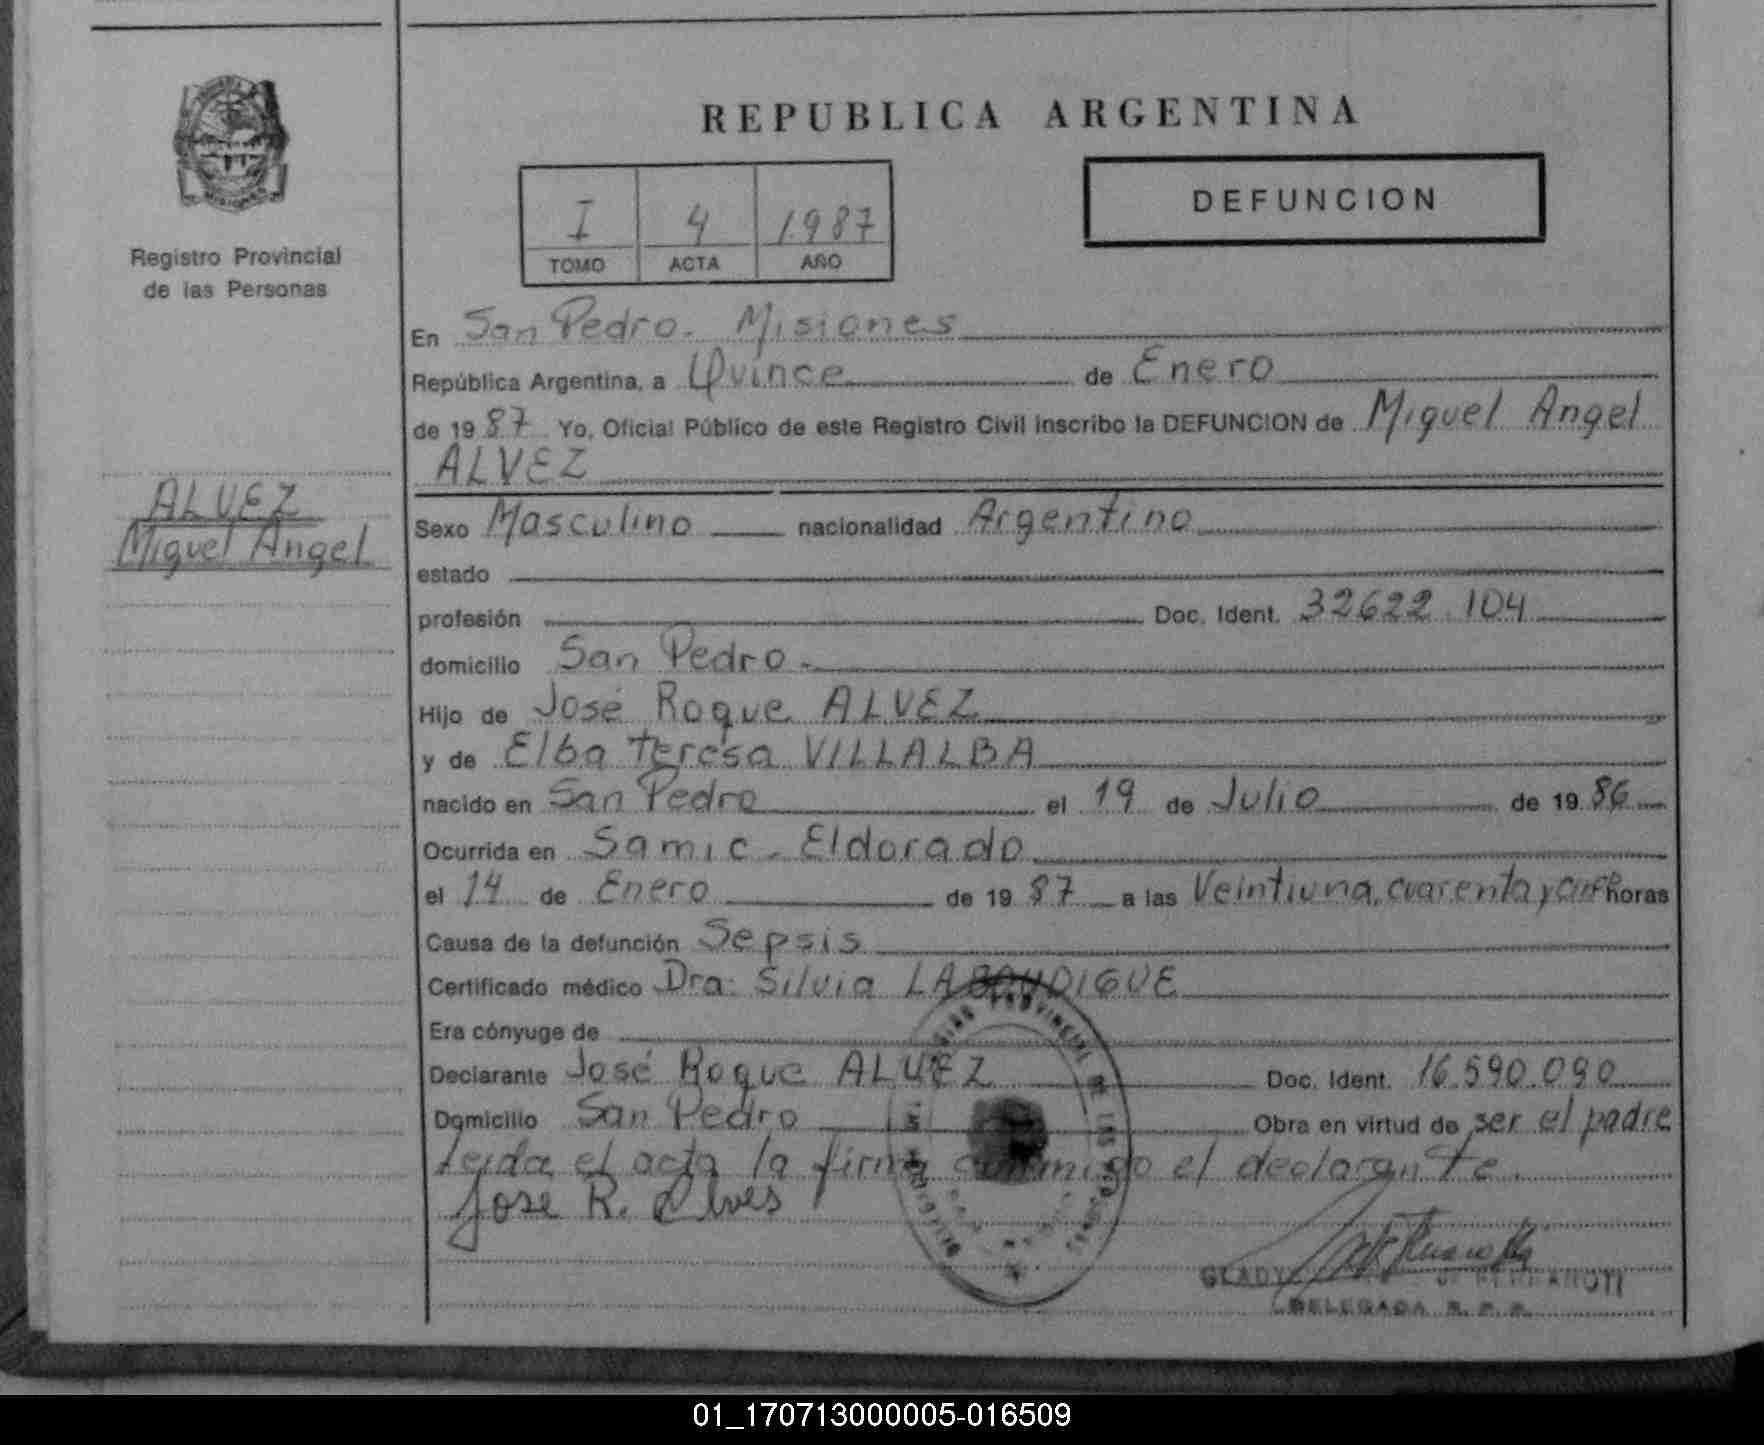 REPUBLICA ARGENTINA
DEFUNCION
I 4 1987
TOMO ACTA AÑO
Registro Provincial
de las Personas
ALVEZ
Miguel Angel
En San Pedro. Misiones
República Argentina, a Quince de Enero
de 1987 Yo, Oficial Público de este Registro Civil inscribo la DEFUNCION de Miguel Angel
ALVEZ
Sexo Masculino nacionalidad Argentino
estado
profesión Doc. Ident. 32622.104
domicilio San Pedro.
Hijo de José Roque ALVEZ
y de Elba Teresa VILLALBA
nacido en San Pedro el 19 de Julio de 1986
Ocurrida en Samic - Eldorado
el 14 de Enero de 1987 a las Veintiuna, cuarenta y horas
Causa de la defunción Sepsis
Certificado médico Dra: Silvia
Era cónyuge de
Declarante José Roque ALVEZ Doc. Ident. 16.590.090
Domicilio San Pedro Obra en virtud de ser el padre
leida el acta la firma conmigo el declarante.
Jose R. Alves
DELEGADA R. P. P.
01_170713000005-016509